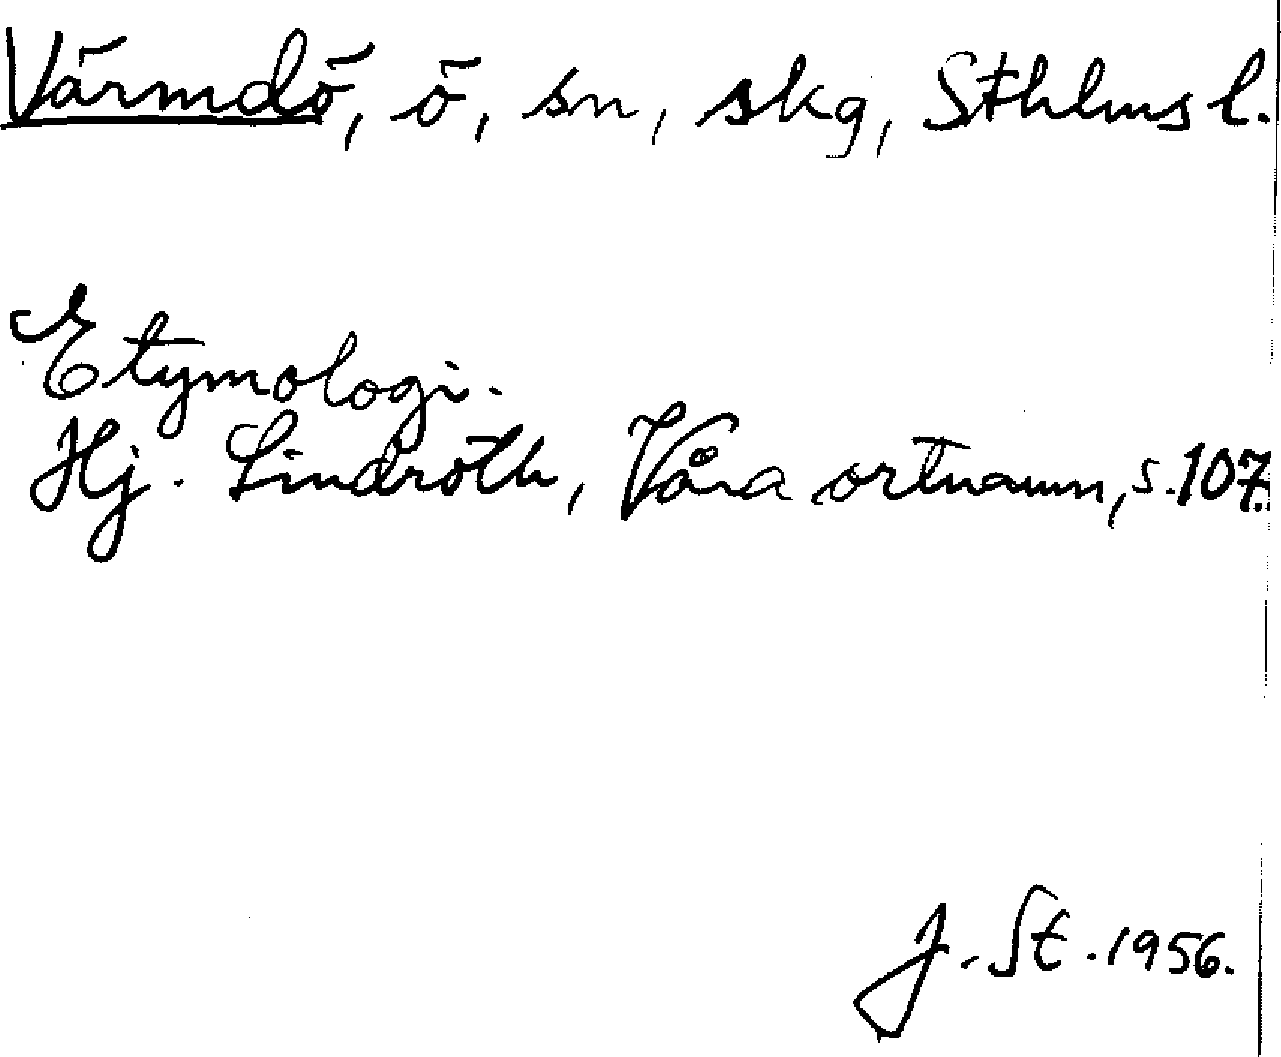 Värmdö, ö, sn, skg, Sthlms l.
Etymologi.
Hj. Lindroth, Våra ortnamn, s. 107.
J. St. 1956.